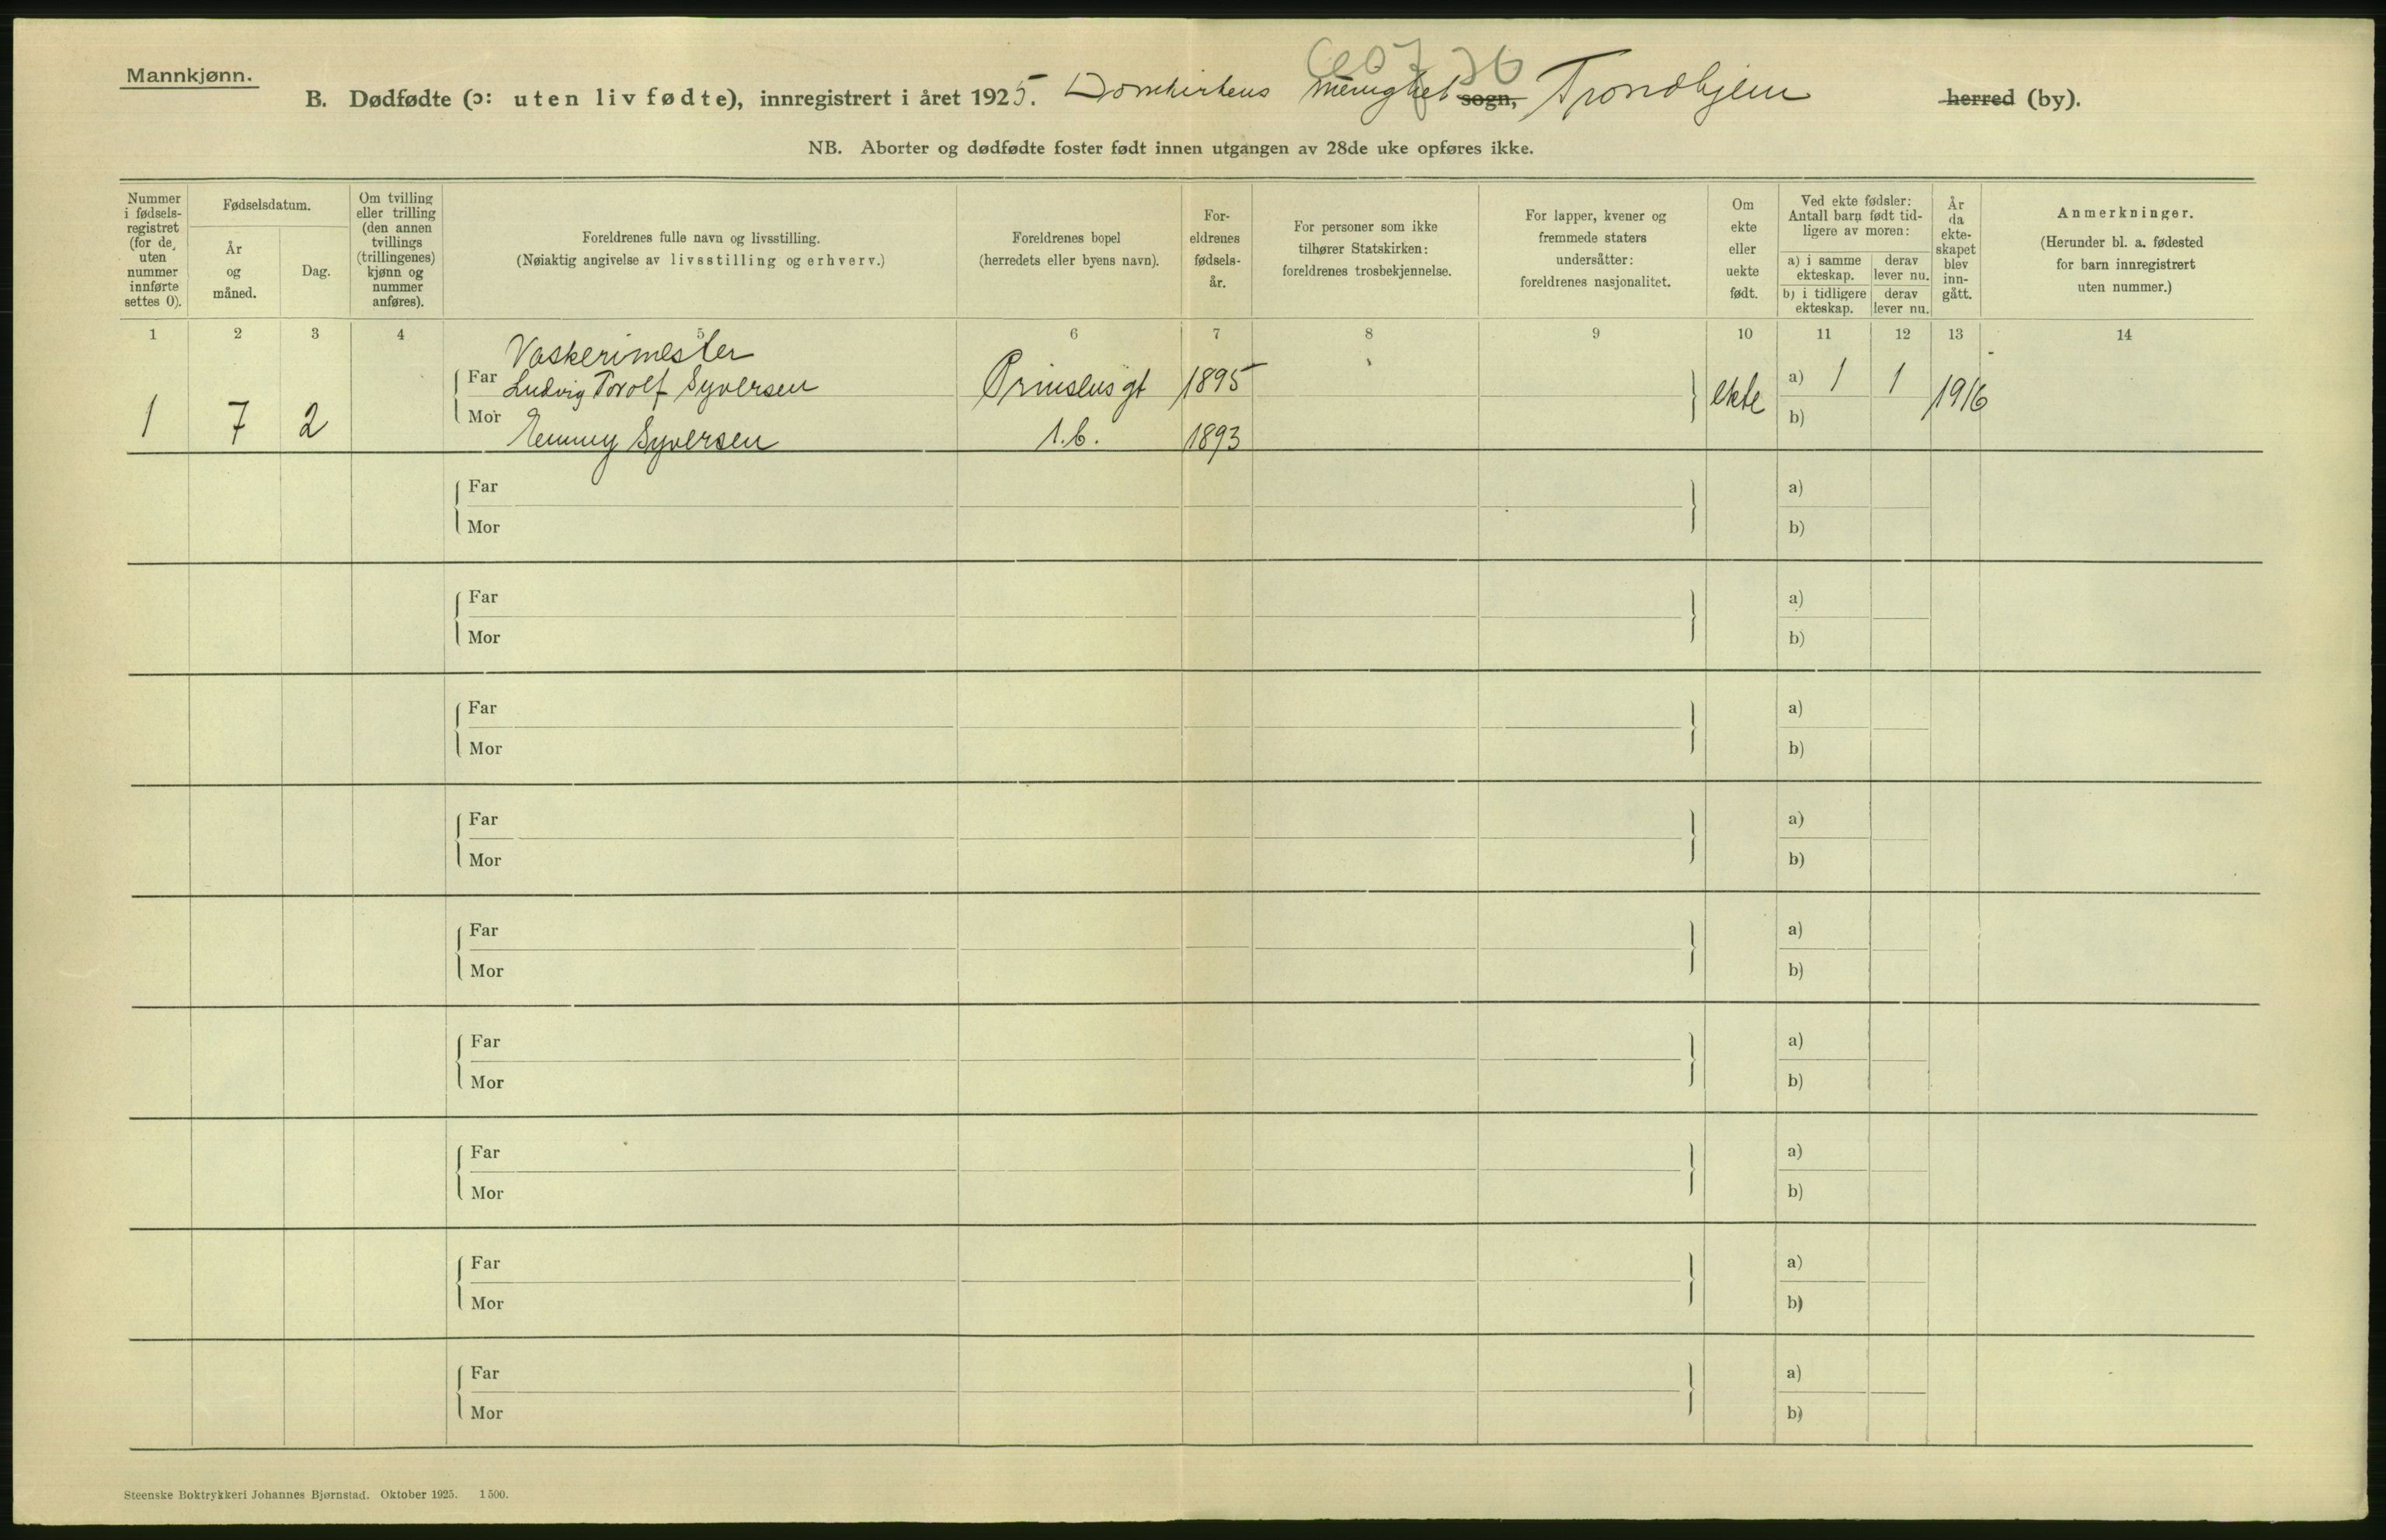 Mannkjønn.
B. Dødfødte (ɔ: uten liv fødte), innregistrert i året 1925. Domkirkens menighet sogn, Trondhjem herred (by).
NB. Aborter og dødfødte foster født innen utgangen av 28de uke opføres ikke.
Nummer i fødsels-registret (for de uten nummer innførte settes 0).
Fødselsdatum.
År og måned.
Dag.
Om tvilling eller trilling (den annen tvillings (trillingenes) kjønn og nummer anføres).
Foreldrenes fulle navn og livsstilling.
(Nøiaktig angivelse av livsstilling og erhverv.)
Foreldrenes bopel
(herredets eller byens navn).
For-eldrenes fødsels-år.
For personer som ikke tilhører Statskirken: foreldrenes trosbekjennelse.
For lapper, kvener og fremmede staters undersåtter: foreldrenes nasjonalitet.
Om ekte eller uekte født.
Ved ekte fødsler: Antall barn født tid-ligere av moren:
a) i samme ekteskap.
derav lever nu.
b) i tidligere ekteskap.
derav lever nu.
År da ekte-skapet blev inn-gått.
Anmerkninger.
(Herunder bl. a. fødested for barn innregistrert uten nummer.)
1 2 3 4 5 6 7 8 9 10 11 12 13 14
Vaskerimester
Far Ludvig Torolf Syversen Prinsensgt 1895 ekte a) 1 1 1916
1 7 2
Mor Emmy Syversen 1.b. 1893 b)
Far a)
Mor b)
Far a)
Mor b)
Far a)
Mor b)
Far a)
Mor b)
Far a)
Mor b)
Far a)
Mor b)
Far a)
Mor b)
Far a)
Mor b)
Far a)
Mor b)
Steenske Boktrykkeri Johannes Bjørnstad. Oktober 1925. 1500.